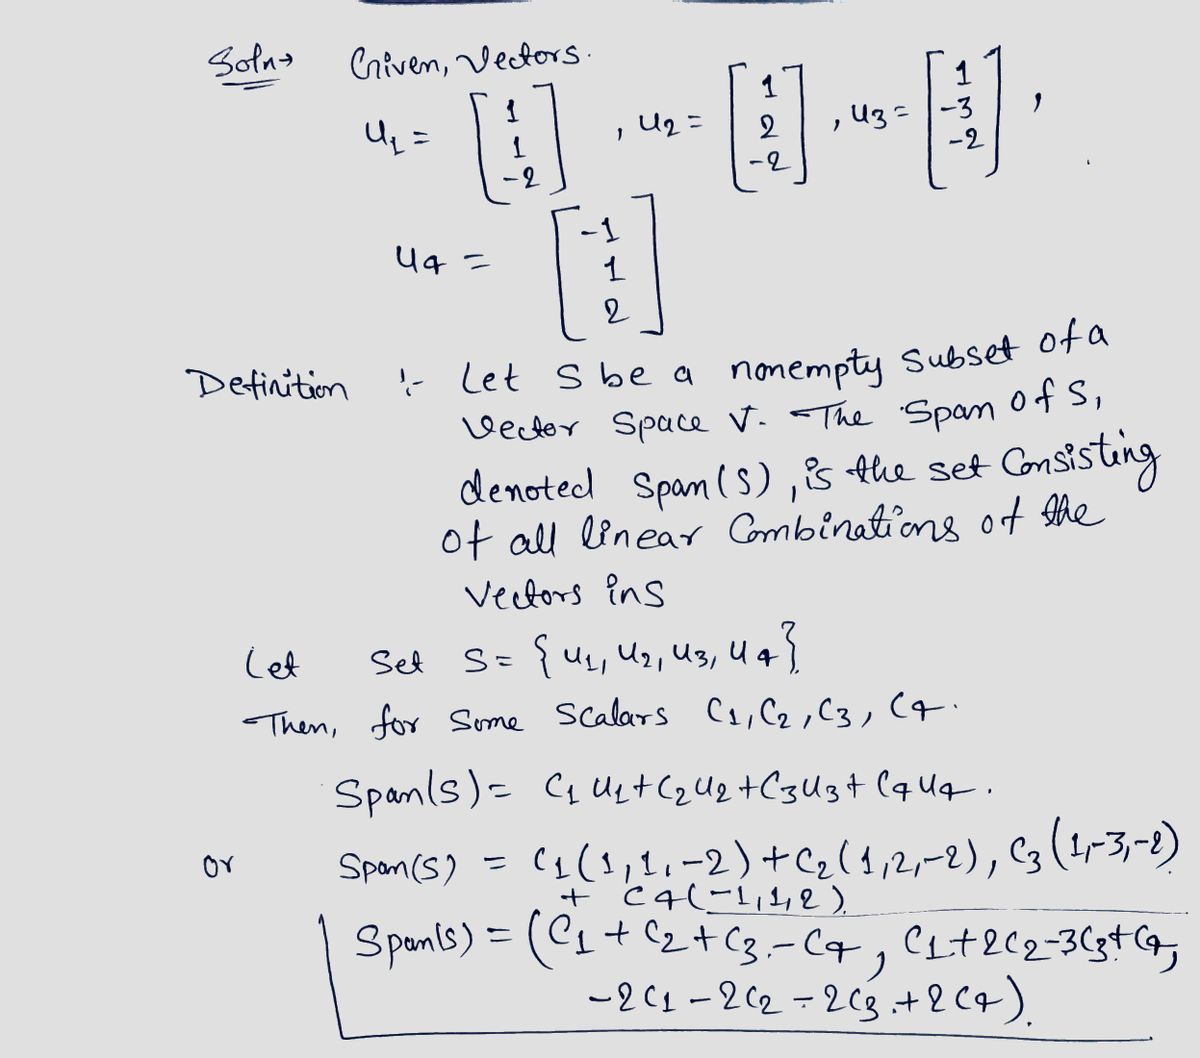 Soln→ Given, Vectors.
u1 = [1 1 -2], u2 = [1 2 -2], u3 = [1 -3 -2],
u4 = [-1 1 2]
Definition :- Let S be a nonempty subset of a
vector space V. The span of S,
denoted span(S), is the set Consisting
of all linear Combinations of the
vectors in S
Let Set S = {u1, u2, u3, u4}
Then, for Some Scalars C1, C2, C3, C4.
Span(S) = C1 u1 + C2 u2 + C3 u3 + C4 u4.
or Span(S) = C1(1,1,-2) + C2(1,2,-2), C3(1,-3,-2)
+ C4(-1,1,2)
Span(S) = (C1 + C2 + C3 - C4, C1 + 2C2 - 3C3 + C4,
-2C1 - 2C2 - 2C3 + 2C4).